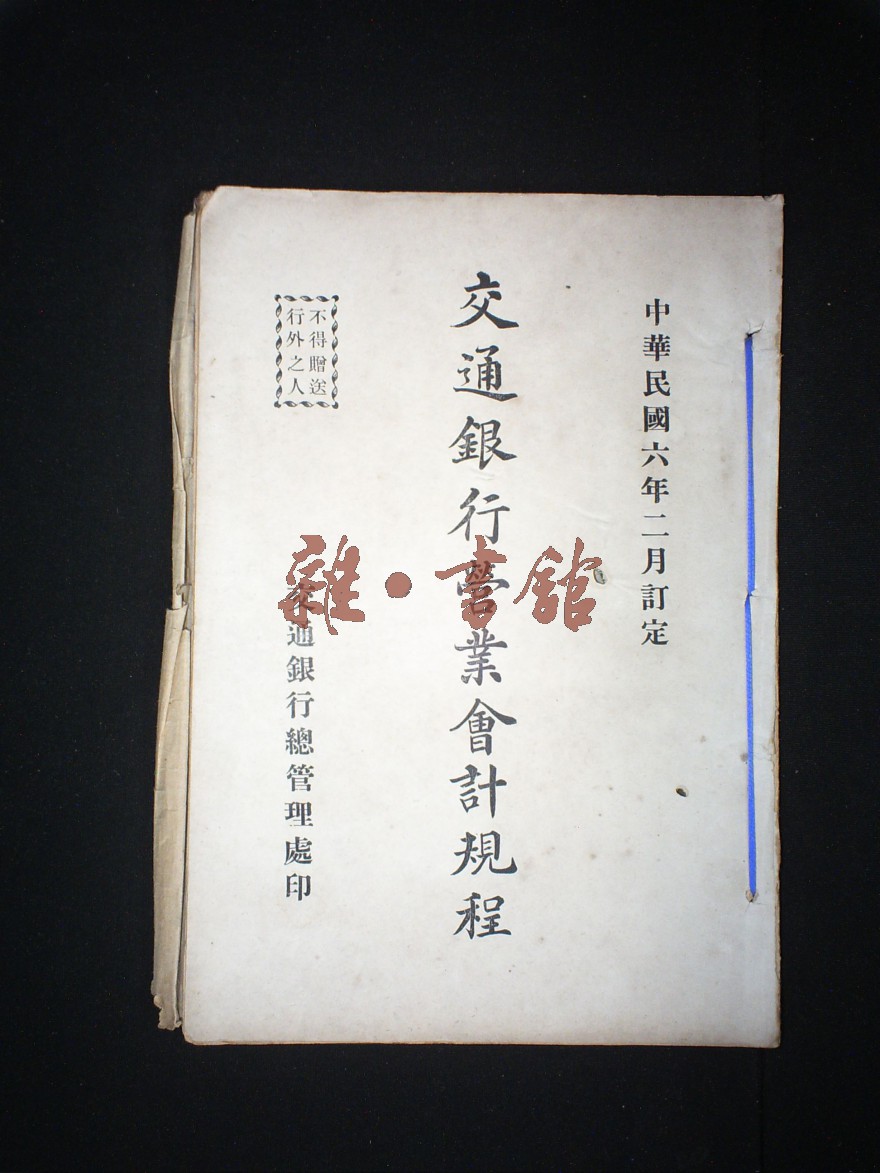 中華民國六年二月訂定
交通銀行營業會計規程
不得贈送
行外之人
交通銀行總管理處印
雜·書館